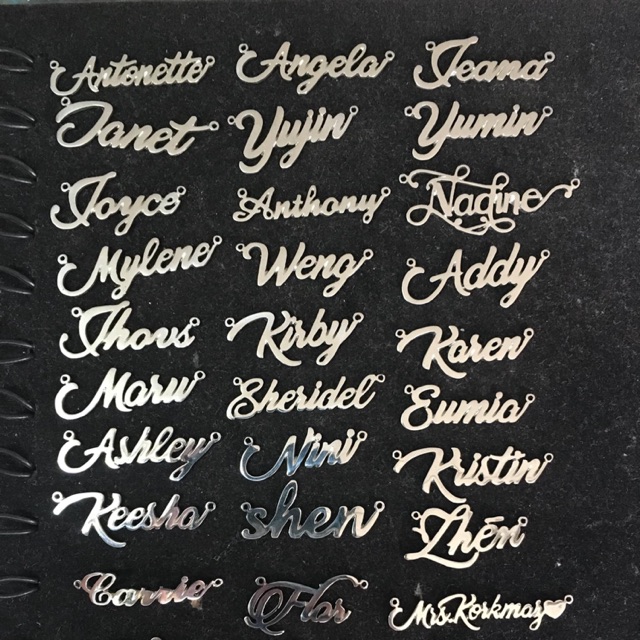 Antonette Angela Jeana
Janet Yujin Yumin
Joyce Anthony Nadine
Mylene Weng Addy
Jhovs Kirby Karen
Maru Sheridel Eumia
Ashley Nini Kristin
Keesha shen Zhēn
Carrie Flor Mrs.Korkmaz